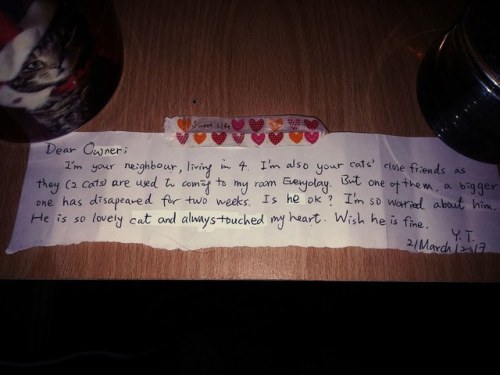 Sweet life
Dear Owner:
I'm your neighbour, living in 4. I'm also your cats' close friends as
they (2 cats) are used to coming to my room Everyday. But one of them, a bigger
one has disapeared for two weeks. Is he ok? I'm so worried about him.
He is so lovely cat and always touched my heart. Wish he is fine.
Y.T.
21/March/2013